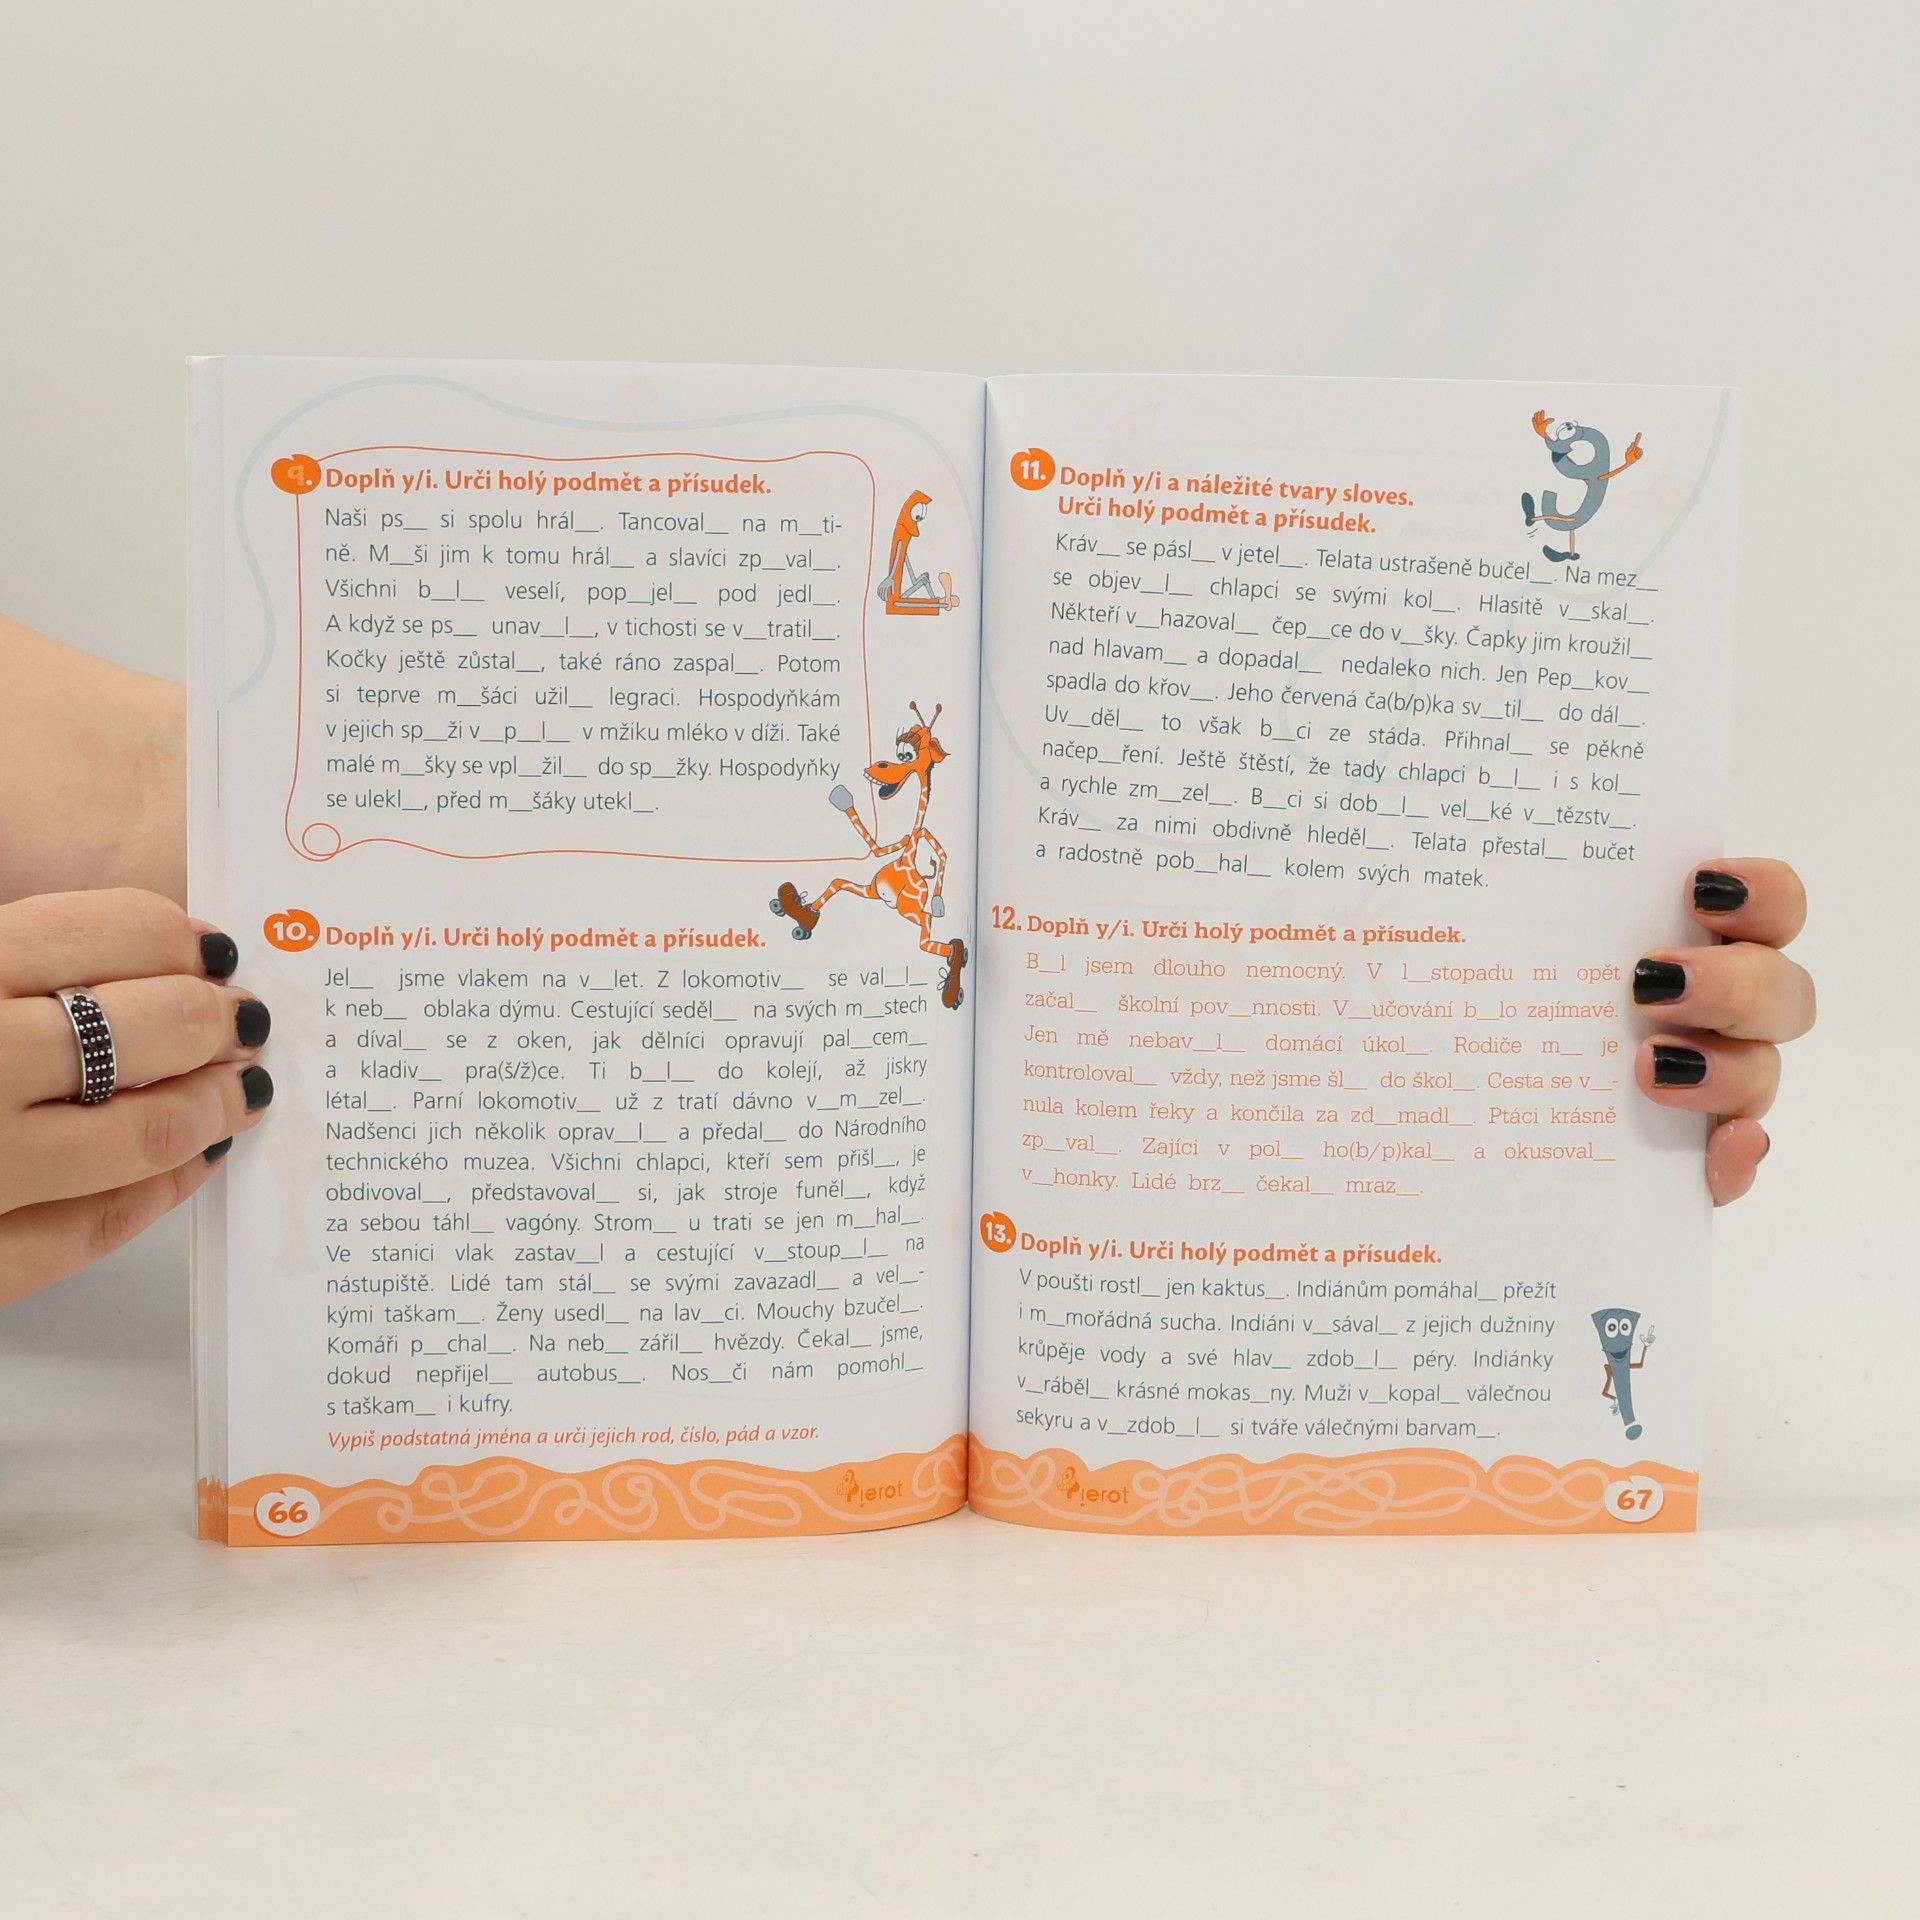 9. Doplň y/i. Urči holý podmět a přísudek.
Naši ps__ si spolu hrál__. Tancoval__ na m__ti-
ně. M__ši jim k tomu hrál__ a slavíci zp__val__.
Všichni b__l__ veselí, pop__jel__ pod jedl__.
A když se ps__ unav__l__, v tichosti se v__tratil__.
Kočky ještě zůstal__, také ráno zaspal__. Potom
si teprve m__šáci užil__ legraci. Hospodyňkám
v jejich sp__ži v__p__l__ v mžiku mléko v díži. Také
malé m__šky se vpl__žil__ do sp__žky. Hospodyňky
se ulekl__, před m__šáky utekl__.
10. Doplň y/i. Urči holý podmět a přísudek.
Jel__ jsme vlakem na v__let. Z lokomotiv__ se val__l__
k neb__ oblaka dýmu. Cestující seděl__ na svých m__stech
a díval__ se z oken, jak dělníci opravují pal__cem__
a kladiv__ pra(š/ž)ce. Ti b__l__ do kolejí, až jiskry
létal__. Parní lokomotiv__ už z tratí dávno v__m__zel__.
Nadšenci jich několik oprav__l__ a předal__ do Národního
technického muzea. Všichni chlapci, kteří sem přišl__, je
obdivoval__, představoval__ si, jak stroje funěl__, když
za sebou táhl__ vagóny. Strom__ u trati se jen m__hal__.
Ve stanici vlak zastav__l a cestující v__stoup__l__ na
nástupiště. Lidé tam stál__ se svými zavazadl__ a vel__-
kými taškam__. Ženy usedl__ na lav__ci. Mouchy bzučel__.
Komáři p__chal__. Na neb__ zářil__ hvězdy. Čekal__ jsme,
dokud nepřijel__ autobus__. Nos__či nám pomohl__
s taškam__ i kufry.
Vypiš podstatná jména a urči jejich rod, číslo, pád a vzor.
66
Pierot
11. Doplň y/i a náležité tvary sloves.
Urči holý podmět a přísudek.
Kráv__ se pásl__ v jetel__. Telata ustrašeně bučel__. Na mez__
se objev__l__ chlapci se svými kol__. Hlasitě v__skal__.
Někteří v__hazoval__ čep__ce do v__šky. Čapky jim kroužil__
nad hlavam__ a dopadal__ nedaleko nich. Jen Pep__kov__
spadla do křov__. Jeho červená ča(b/p)ka sv__til__ do dál__.
Uv__děl__ to však b__ci ze stáda. Přihnal__ se pěkně
načep__ření. Ještě štěstí, že tady chlapci b__l__ i s kol__
a rychle zm__zel__. B__ci si dob__l__ vel__ké v__tězstv__.
Kráv__ za nimi obdivně hleděl__. Telata přestal__ bučet
a radostně pob__hal__ kolem svých matek.
12. Doplň y/i. Urči holý podmět a přísudek.
B__l jsem dlouho nemocný. V l__stopadu mi opět
začal__ školní pov__nnosti. V__učování b__lo zajímavé.
Jen mě nebav__l__ domácí úkol__. Rodiče m__ je
kontroloval__ vždy, než jsme šl__ do škol__. Cesta se v__-
nula kolem řeky a končila za zd__madl__. Ptáci krásně
zp__val__. Zajíci v pol__ ho(b/p)kal__ a okusoval__
v__honky. Lidé brz__ čekal__ mraz__.
13. Doplň y/i. Urči holý podmět a přísudek.
V poušti rostl__ jen kaktus__. Indiánům pomáhal__ přežít
i m__mořádná sucha. Indiáni v__sával__ z jejich dužniny
krůpěje vody a své hlav__ zdob__l__ péry. Indiánky
v__ráběl__ krásné mokas__ny. Muži v__kopal__ válečnou
sekyru a v__zdob__l__ si tváře válečnými barvam__.
Pierot
67